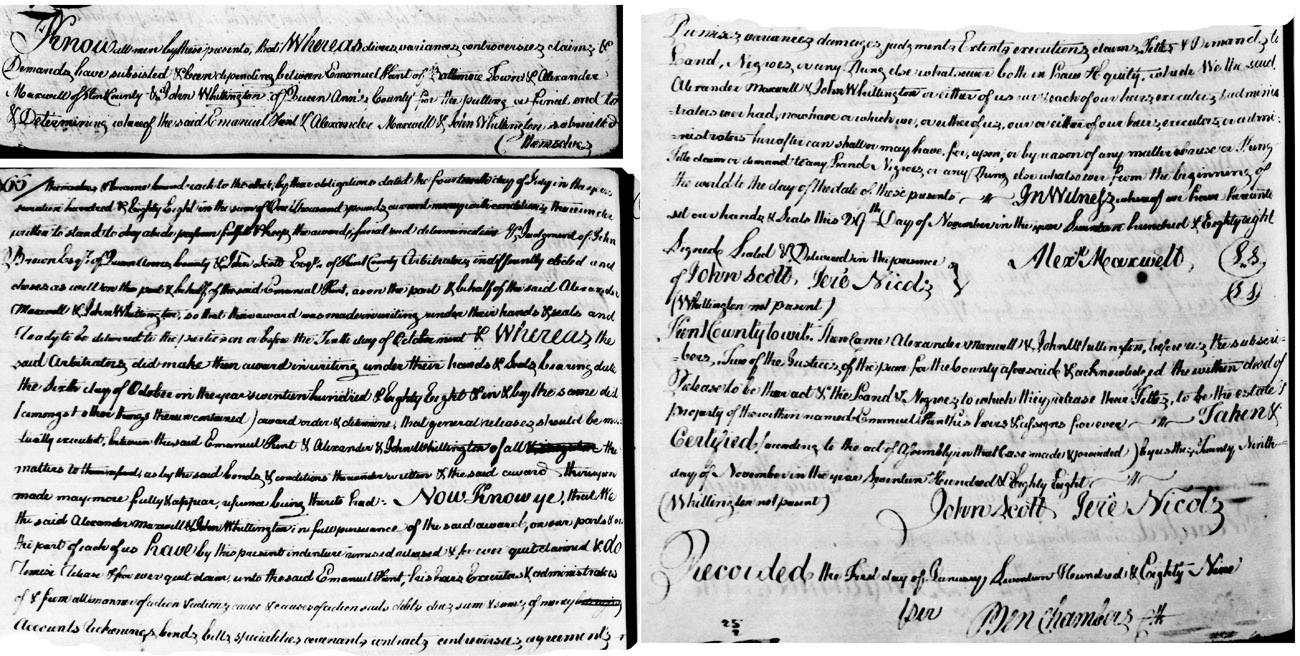 Know all men by these presents, that Whereas divers variances controversies claims &
Demands have subsisted & been depending between Emanuel Kent of Baltimore Town & Alexander
Maxwell of Kent County & John Whittington of Queen Ann's County for the putting a final end to
& Determining whereof the said Emanuel Kent & Alexander Maxwell & John Whittington submitted
themselves
themselves & became bound each to the other, by their obligations dated the fourteenth day of July in the year
seventeen hundred & Eighty Eight in the sum of One thousand pounds current money with condition thereunder
written to stand to obey abide perform fulfil & keep the award, final end determination & Judgment of John
Brown Esqr. of Queen Annes County & John Scott Esqr. of Kent County Arbitrators indifferently elected and
chosen as well on the part & behalf of the said Emanuel Kent, as on the part & behalf of the said Alexander
Maxwell & John Whittington, so that the award was made in writing under their hands & seals and
ready to be delivered to the parties on or before the Tenth day of October next & Whereas the
said Arbitrators did make their award in writing under their hands & Seals bearing date
the Sixth day of October in the year seventeen hundred & Eighty Eight & in & by the same did
(amongst other things therein contained) award order & determine, that general releases should be mu-
tually executed, between the said Emanuel Kent & Alexander & John Whittington of all the
matters to them as by the said bonds & conditions thereunder written & the said award thereupon
made may more fully & appear, reference being thereto had. Now Know ye, that We
the said Alexander Maxwell & John Whittington in full pursuance of the said award, on our parts & on
the part of each of us have by this present indenture remised released & for ever quit claimed & do
remise release & for ever quit claim unto the said Emanuel Kent, his heirs Executors & administrators
of & from all manner of action & actions, cause & causes of action suits debts dues sum & sums of money
Accounts Reckonings, bonds, bills specialties covenants contracts controversies, agreements
Promises variances damages judgments Extents executions claims Titles & Demands to
Land, Negroes, or any thing else whatsoever both in Law & Equity, which We the said
Alexander Maxwell & John Whittington or either of us our & each of our heirs executors & adminis
trators ever had, now have or which we, or either of us, our or either of our heirs, executors or admi-
nistrators hereafter can shall or may have, for, upon, or by reason of any matter cause or thing
Title claim or demand to any Land Negroes, or any thing else whatsoever from the beginning of
the world to the day of the date of these presents In Witness whereof we have hereunto
set our hands & Seals this 29th Day of November in the year Seventeen hundred & Eighty eight
Signed Sealed & Delivered in the presence
of John Scott, Jere Nicols
Alexr. Maxwell, (L.S.)
(L S)
(Whittington not present)
Kent County to wit. Then Came Alexander Maxwell & John Whittington, before us the subscri-
bers, Two of the Justices of the peace for the County aforesaid & acknowledged the within deed of
Release to be their act & the Land & Negroes to which they release their Titles, to be the estate &
property of the within named Emanuel Kent his heirs & assigns forever Taken &
Certified, (according to the act of Assembly in that case made & provided) by us this Twenty Ninth
day of November in the year Seventeen Hundred & Eighty Eight
(Whittington not present) John Scott Jere Nicols
Recorded the First day of January, Seventeen Hundred & Eighty Nine
per Ben Chambers Clk
25
2